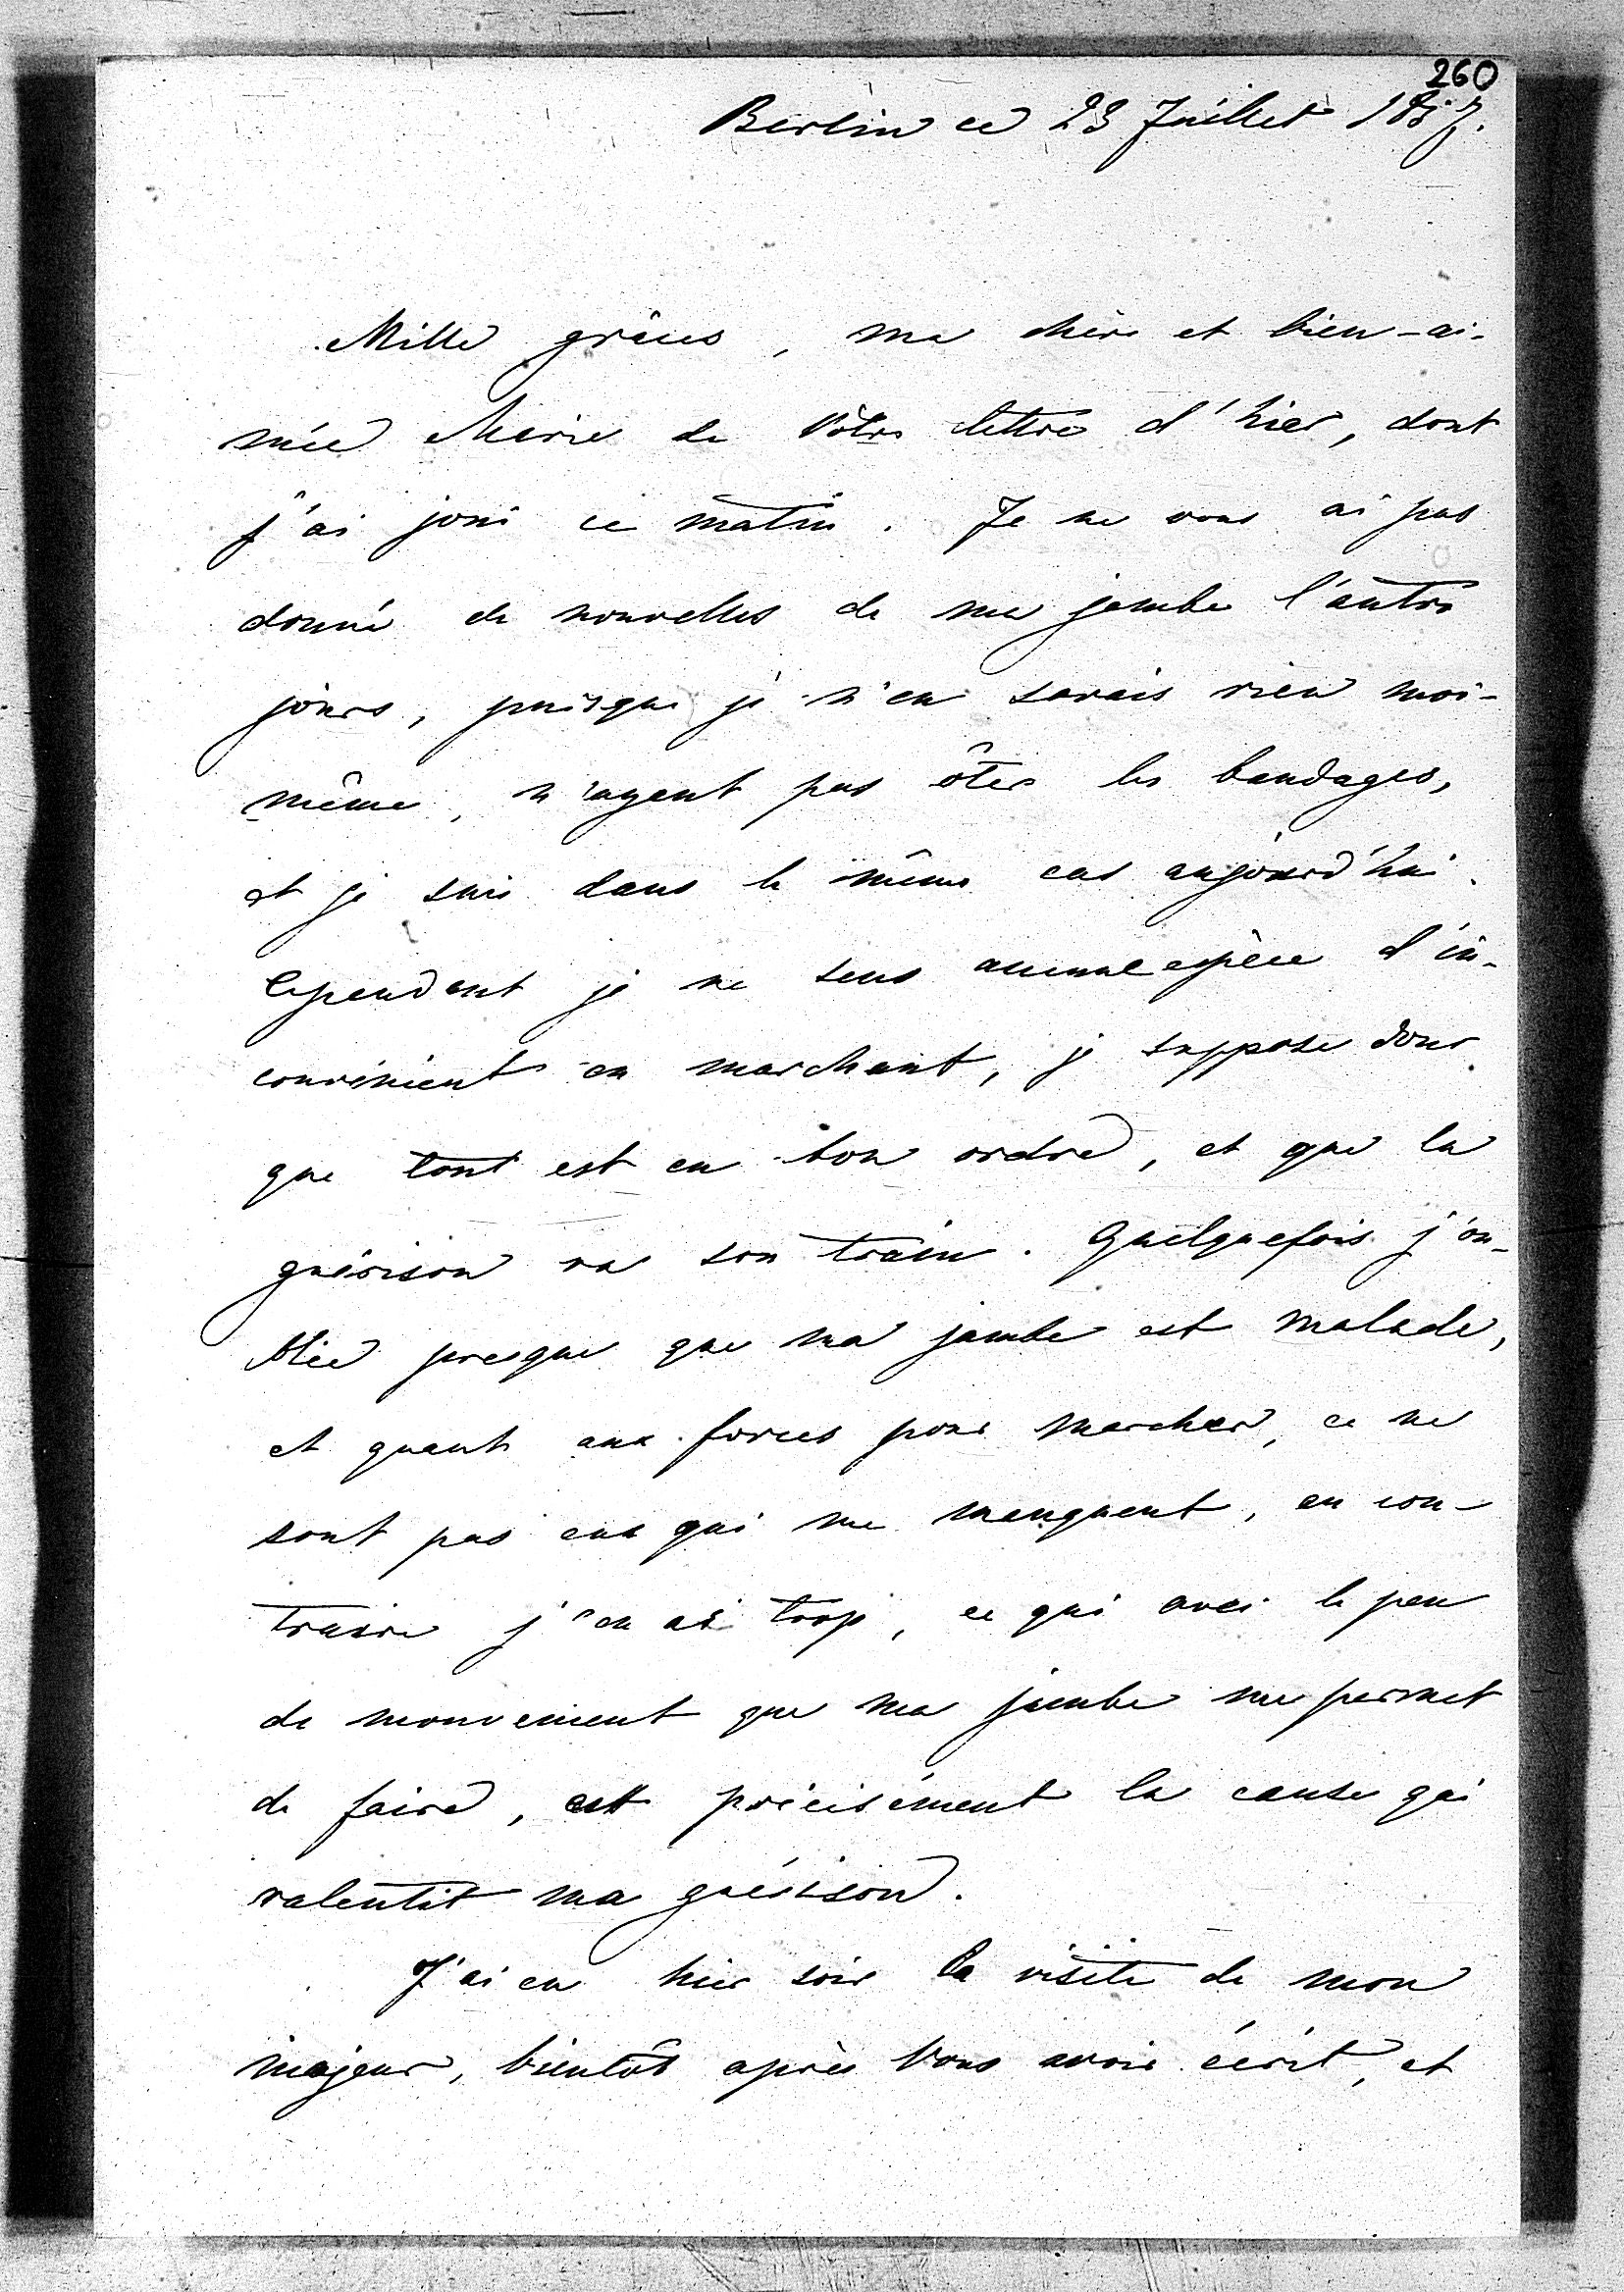 260
Berlin ce 23 Juillet 1857.
Mille grâces, ma chère et bien-ai-
mée Marie de Vôtre lettre d'hier, dont
j'ai joui ce matin. Je ne vous ai pas
donné de nouvelles de ma jambe l'autre
jours, puisque je n'en savais rien moi-
même, n'ayant pas ôter les bandages,
et je suis dans le même cas aujourd'hui.
Cependant je ne sens aucune espèce d'in-
convénient en marchant, je suppose donc
que tout est en bon ordre, et que la
guérison va son train. Quelquefois j'ou-
blie presque que ma jambe est malade,
et quant aux forces pour marcher, ce ne
sont pas eux qui me manquent, au con-
traire j'en ai trop, ce qui avec le peu
de mouvement que ma jambe me permet
de faire, est précisément la cause qui
ralentit ma guérison.
J'ai eu hier soir la visite de mon
majeur, bientôt après Vous avoir écrit, et